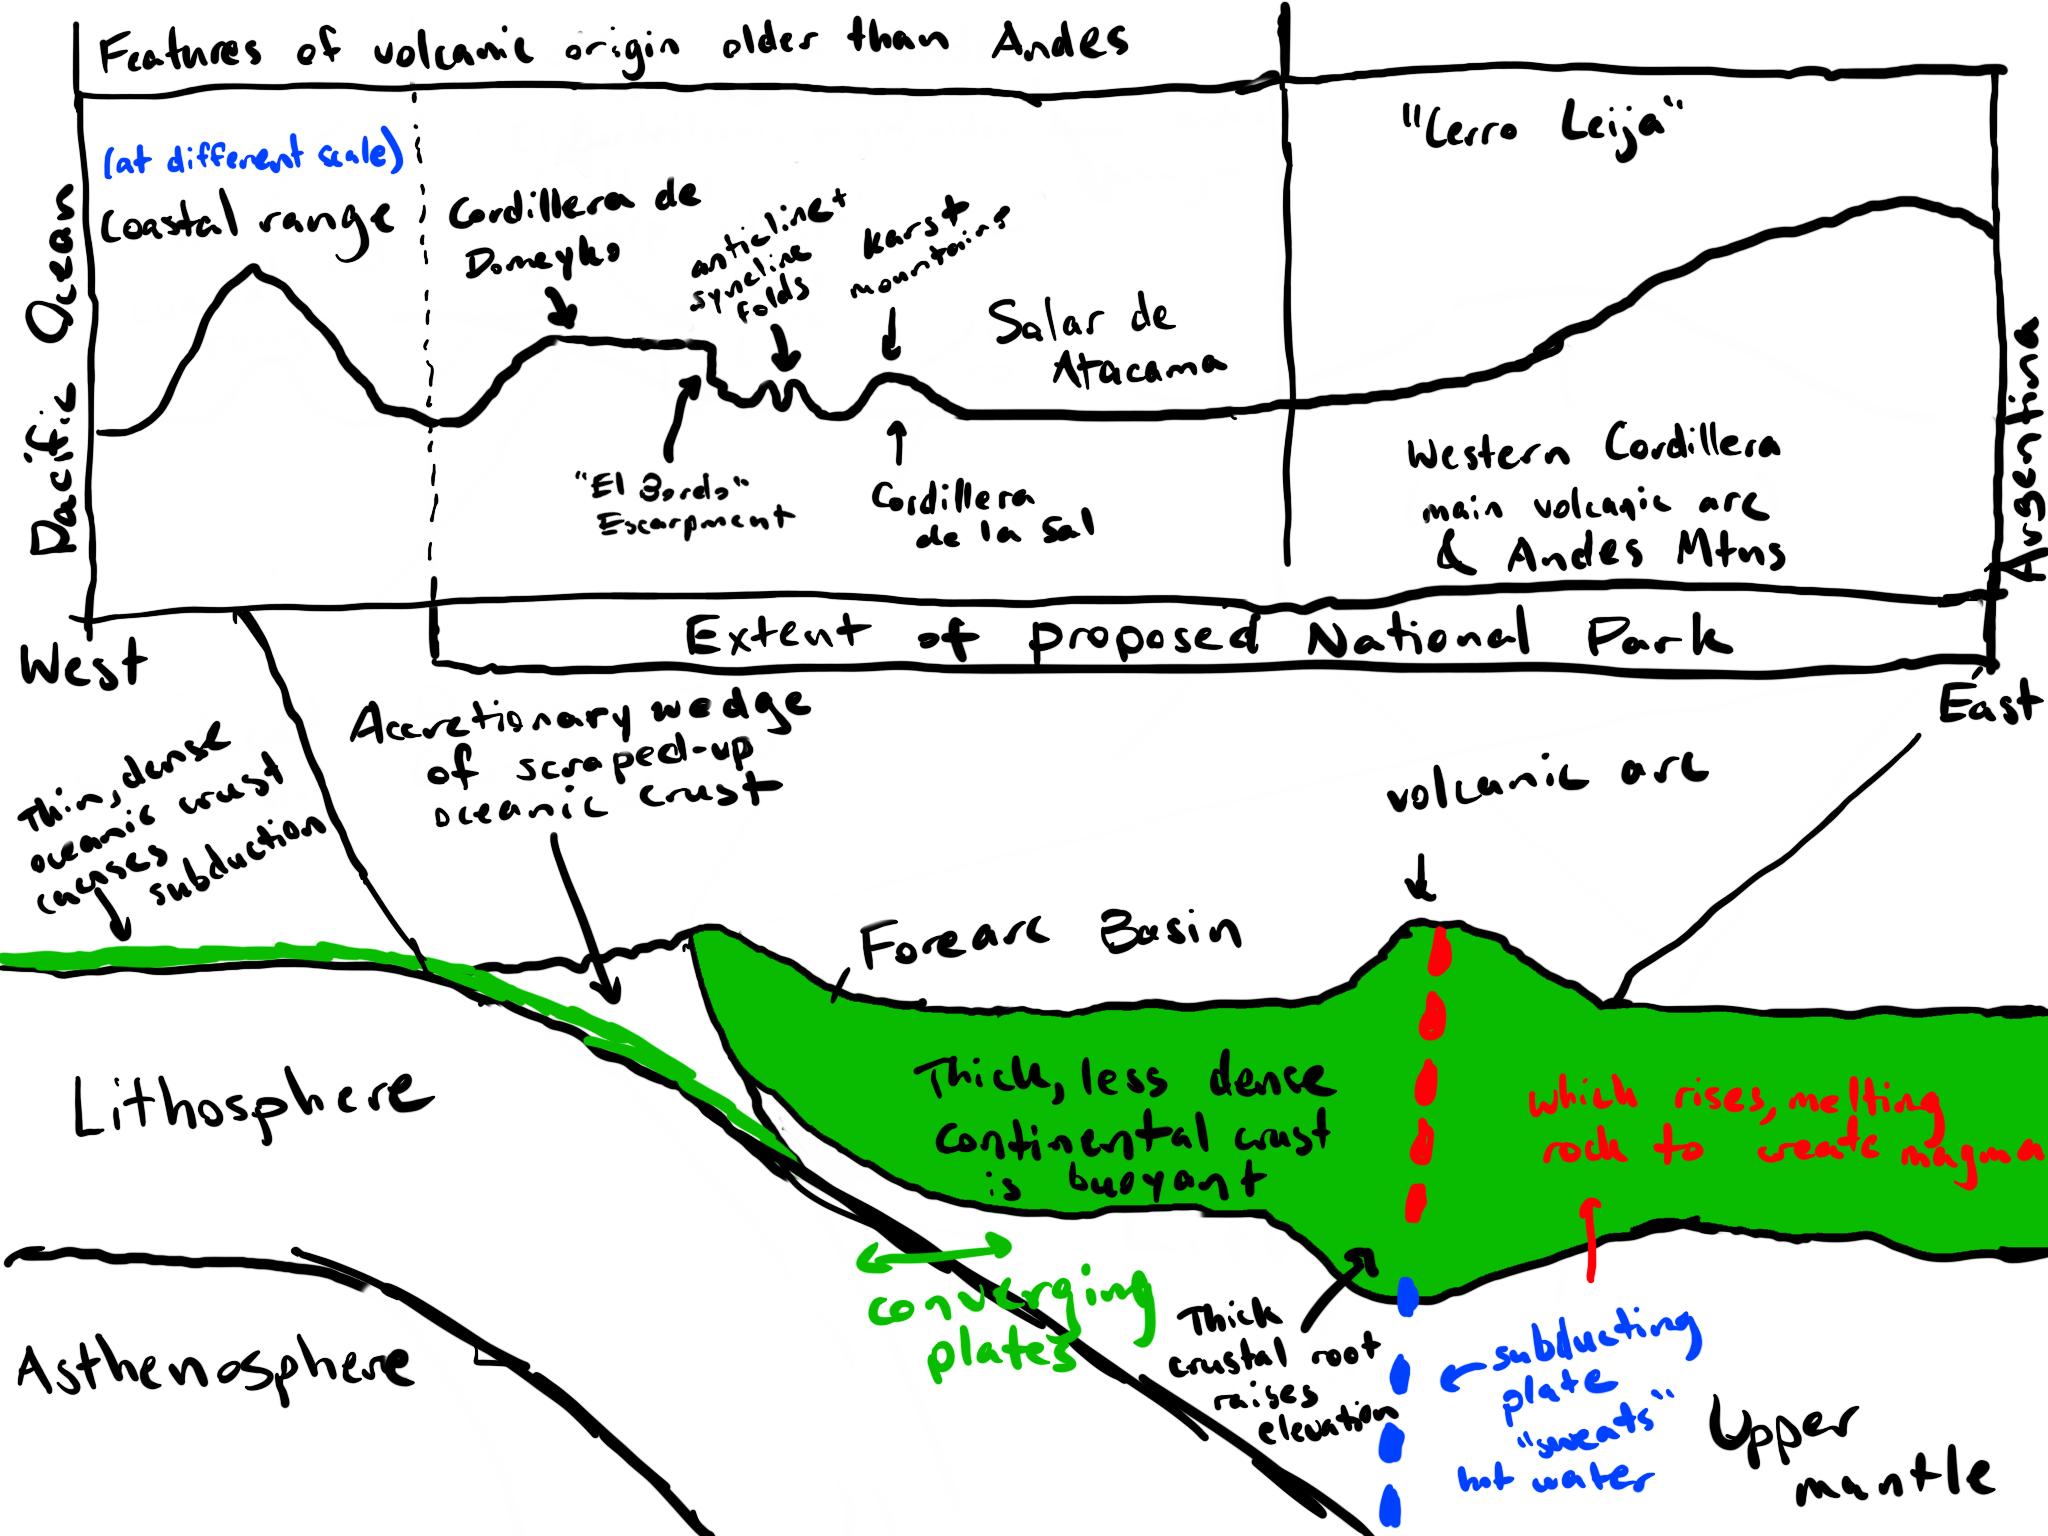 Features of volcanic origin older than Andes
"Cerro Leija"
(at different scale)
Coastal range
Cordillera de
Domeyko
anticline +
syncline
folds
karst
mountains
Salar de
Atacama
Pacific Ocean
Argentina
"El Bordo"
Escarpment
Cordillera
de la Sal
Western Cordillera
main volcanic arc
& Andes Mtns
Extent of proposed National Park
West
East
Thin, dense
oceanic crust
causes
subduction
Accretionary wedge
of scraped-up
oceanic crust
volcanic arc
Forearc Basin
Lithosphere
Thick, less dense
continental crust
is buoyant
which rises, melting
rock to create magma
converging
plates
Thick
crustal root
raises
elevation
subducting
plate
"sweats"
hot water
Asthenosphere
Upper
mantle